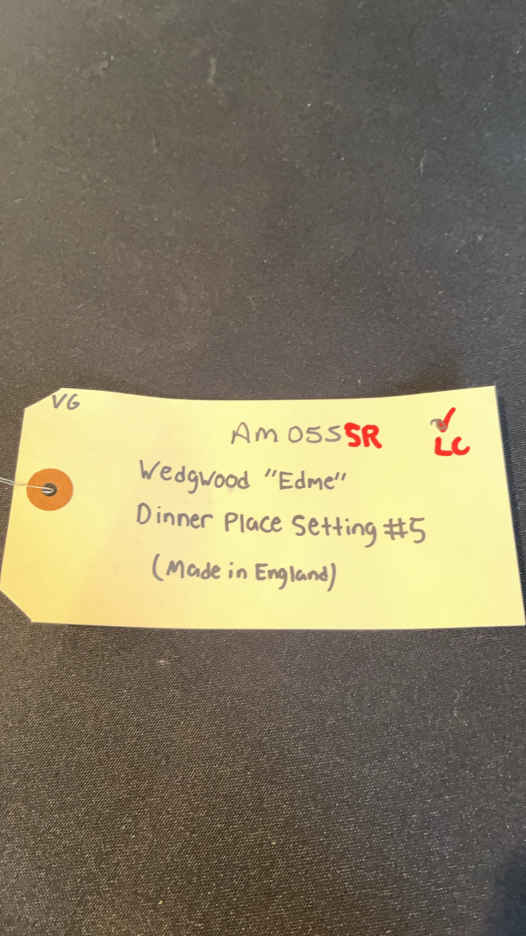 VG
AM 055SR
✓
LC
Wedgwood "Edme"
Dinner Place Setting #5
(Made in England)